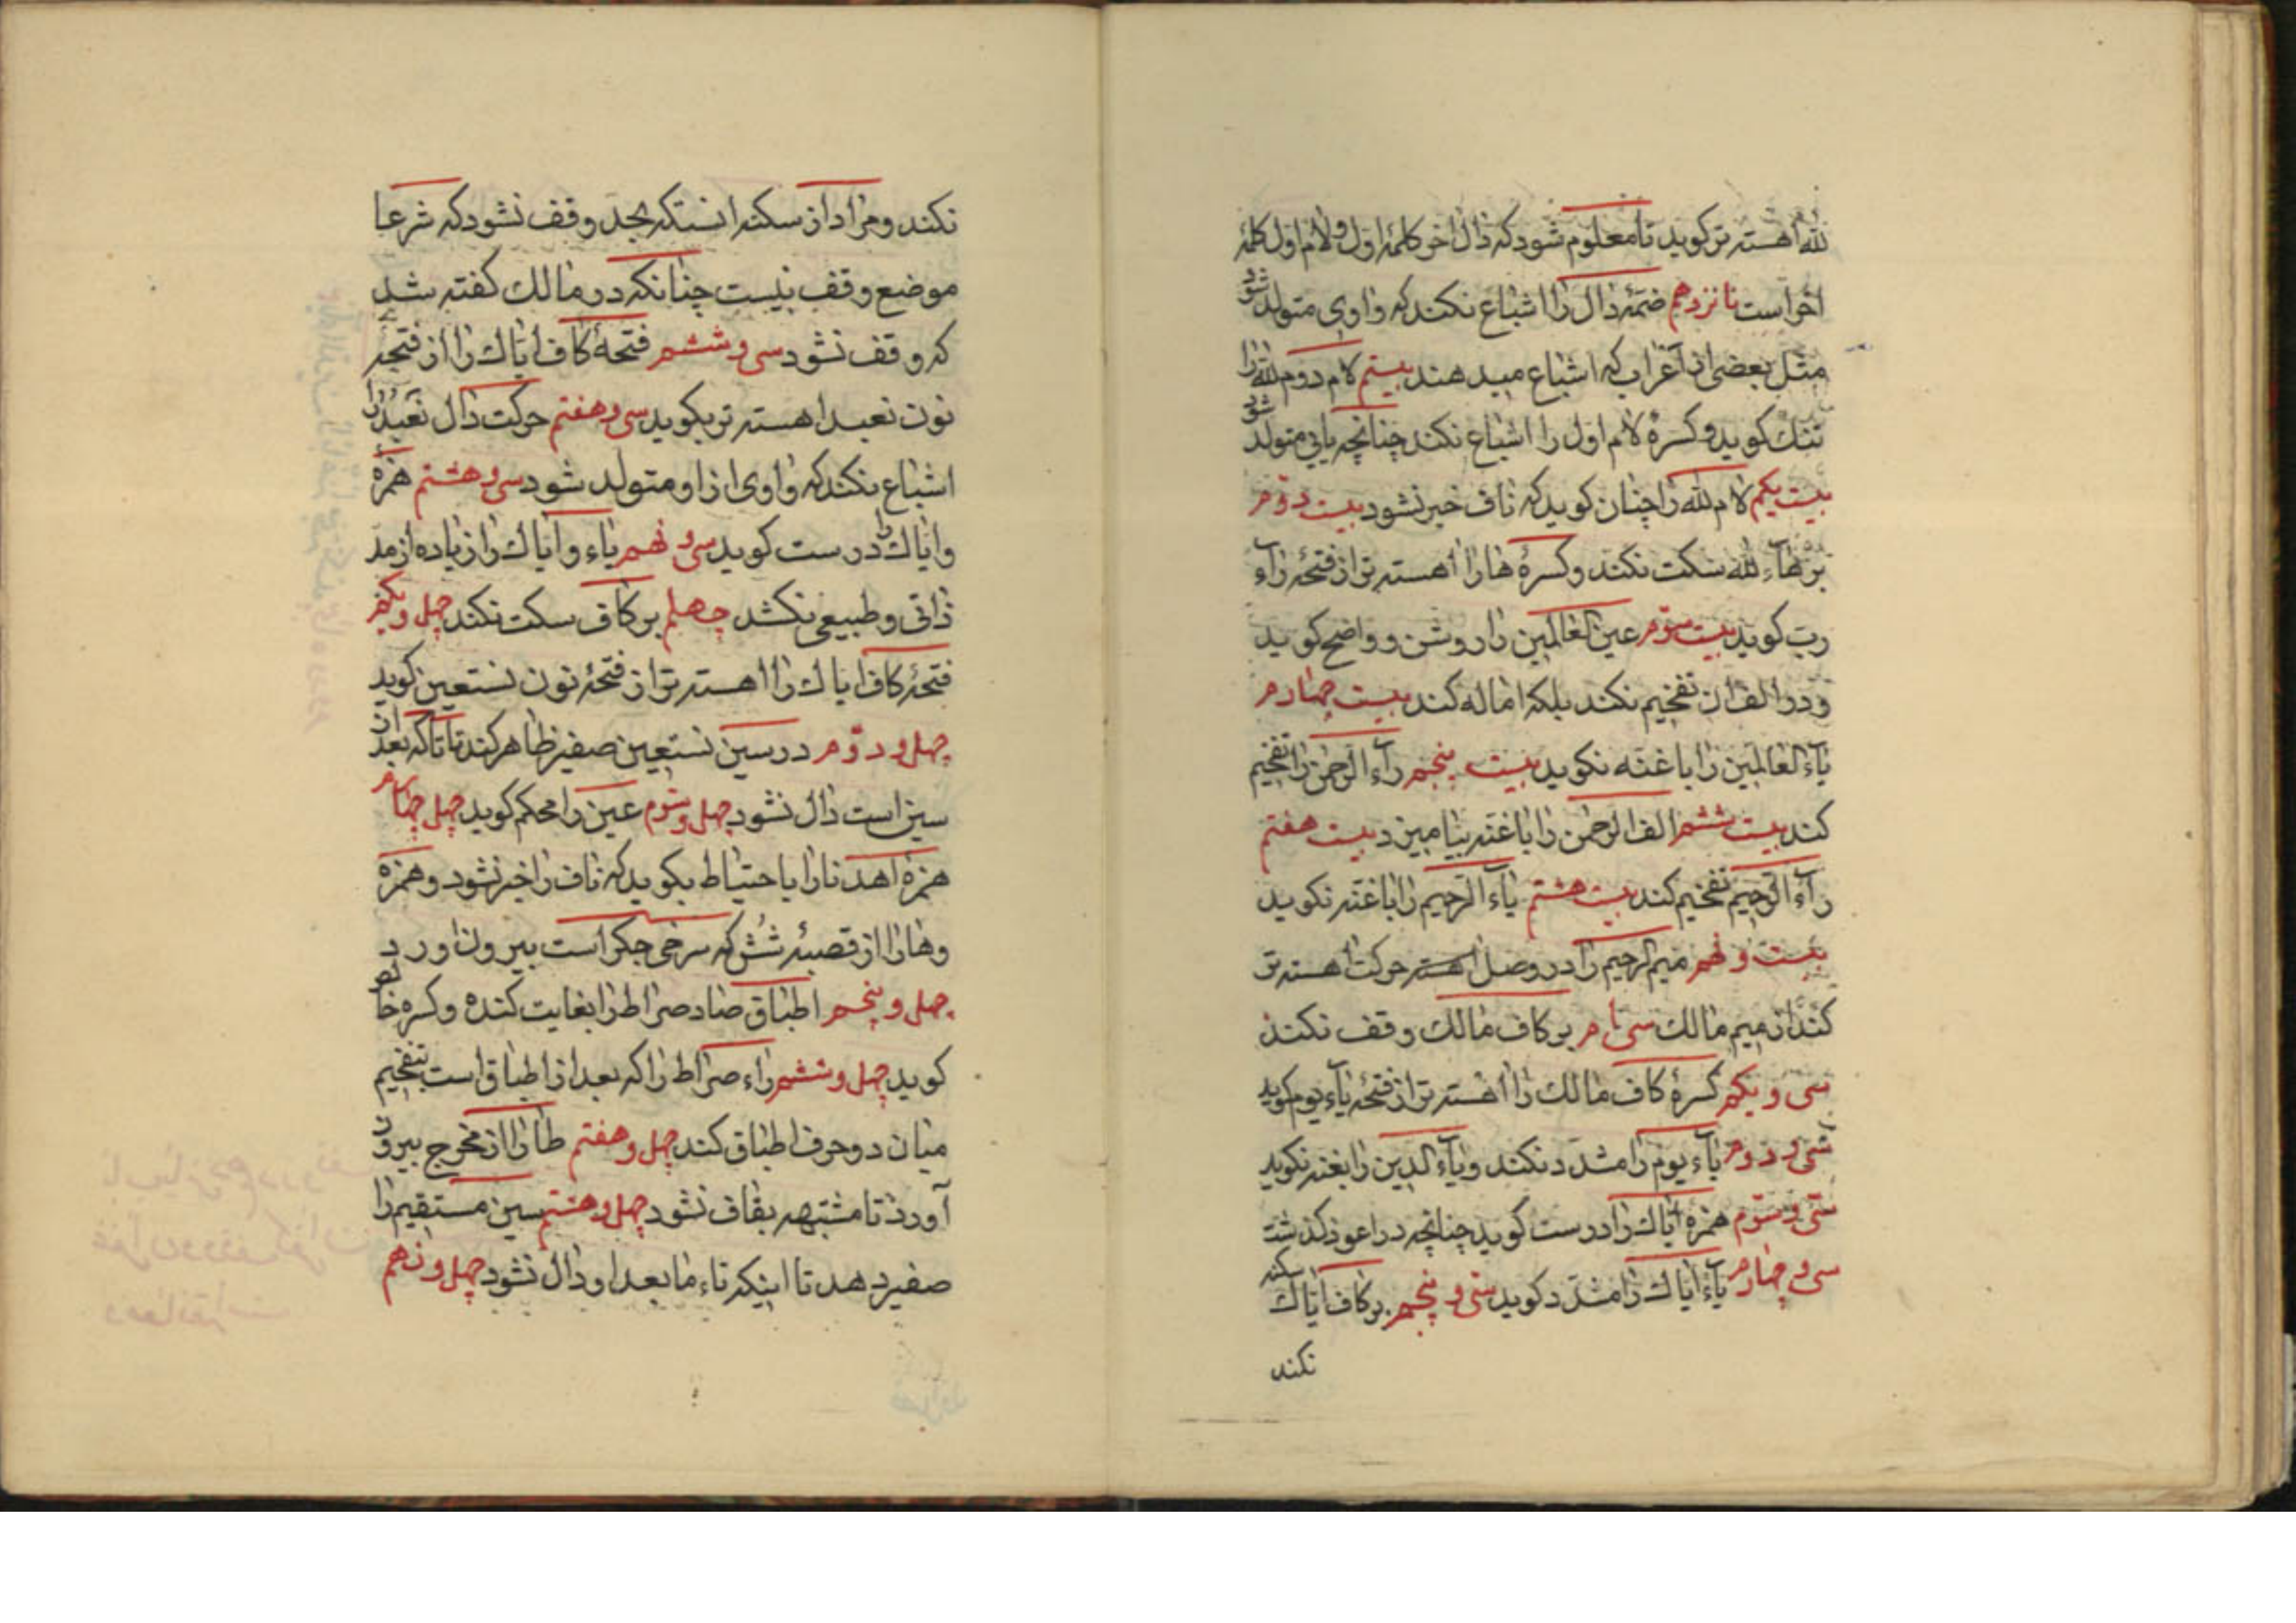 لله اهسته تر کوید تا معلوم شود که دال اخر کلمهٔ اول و لام اول کلمهٔ
اخر است نانزدهم ضمهٔ دال را اشباع نکند که واوی متولد شود
مثل بعضی از اعراب که اشباع میدهند بیستم لام دوم لله را
تنک کوید و کسرهٔ لام اول را اشباع نکند چنانچه یائی متولد شود
بیست یکم لام لله را چنان کوید که ناف خبر نشود بیست دوم
بر هاء لله سکت نکند و کسرهٔ ها را اهسته تر از فتحهٔ راء
رب کوید بیست سوم عین العالمین را روشن و واضح کوید
و در الف ان تفخیم نکند بلکه اماله کند بیست چهارم
یاء العالمین را با غنه نکوید بیست پنجم راء الرحمن را تفخیم
کند بیست ششم الف الرحمن را با غنه نیامیزد بیست هفتم
راء الرحیم تفخیم کند بیست هشتم یاء الرحیم را با غنه نکوید
بیست و نهم میم الرحیم را در وصل اهسته حرکت اهسته تر
کند از میم مالک سی ام بر کاف مالک وقف نکند
سی و یکم کسرهٔ کاف مالک را اهسته تر از فتحهٔ یاء یوم کوید
سی و دوم یاء یوم را مشدد نکند و یاء الدین را بغنه نکوید
سی و سوم همزهٔ ایاک را درست کوید چنانچه در اعوذ کذشت
سی و چهارم یاء ایاک را مشدد کوید سی و پنجم بر کاف ایاک سکته
نکند
نکند و مراد از سکته انستکه بحد وقف نشود که شرعا
موضع وقف نیست چنانکه در مالک کفته شد
که وقف نشود سی و ششم فتحهٔ کاف ایاک را از فتحهٔ
نون نعبد اهسته تر بکوید سی و هفتم حرکت دال نعبد را
اشباع نکند که واوی از او متولد شود سی و هشتم همزهٔ
و ایاک را درست کوید سی و نهم یاء و ایاک را زیاده از مد
ذاتی و طبیعی نکشد چهلم بر کاف سکت نکند چهل و یکم
فتحهٔ کاف ایاک را اهسته تر از فتحهٔ نون نستعین کوید
چهل و دوم در سین نستعین صفیر ظاهر کند تا تا که بعد از
سین است دال نشود چهل و سوم عین را محکم کوید چهل چهارم
همزهٔ اهدنا را با حتیاط بکوید که ناف را خبر نشود و همزه
و ها را از قصبهٔ شش که سرخی جکر است بیرون اورد
چهل و پنجم اطباق صاد صراط را بغایت کنده و کسره خالص
کوید چهل و ششم راء صراط را که بعد از اطباق است بتفخیم
میان دو حرف اطباق کند چهل و هفتم طا را از مخرج بیرون
آورد تا مشتبه بقاف نشود چهل و هشتم سین مستقیم را
صفیر دهد تا اینکه تاء ما بعد او دال نشود چهل و نهم